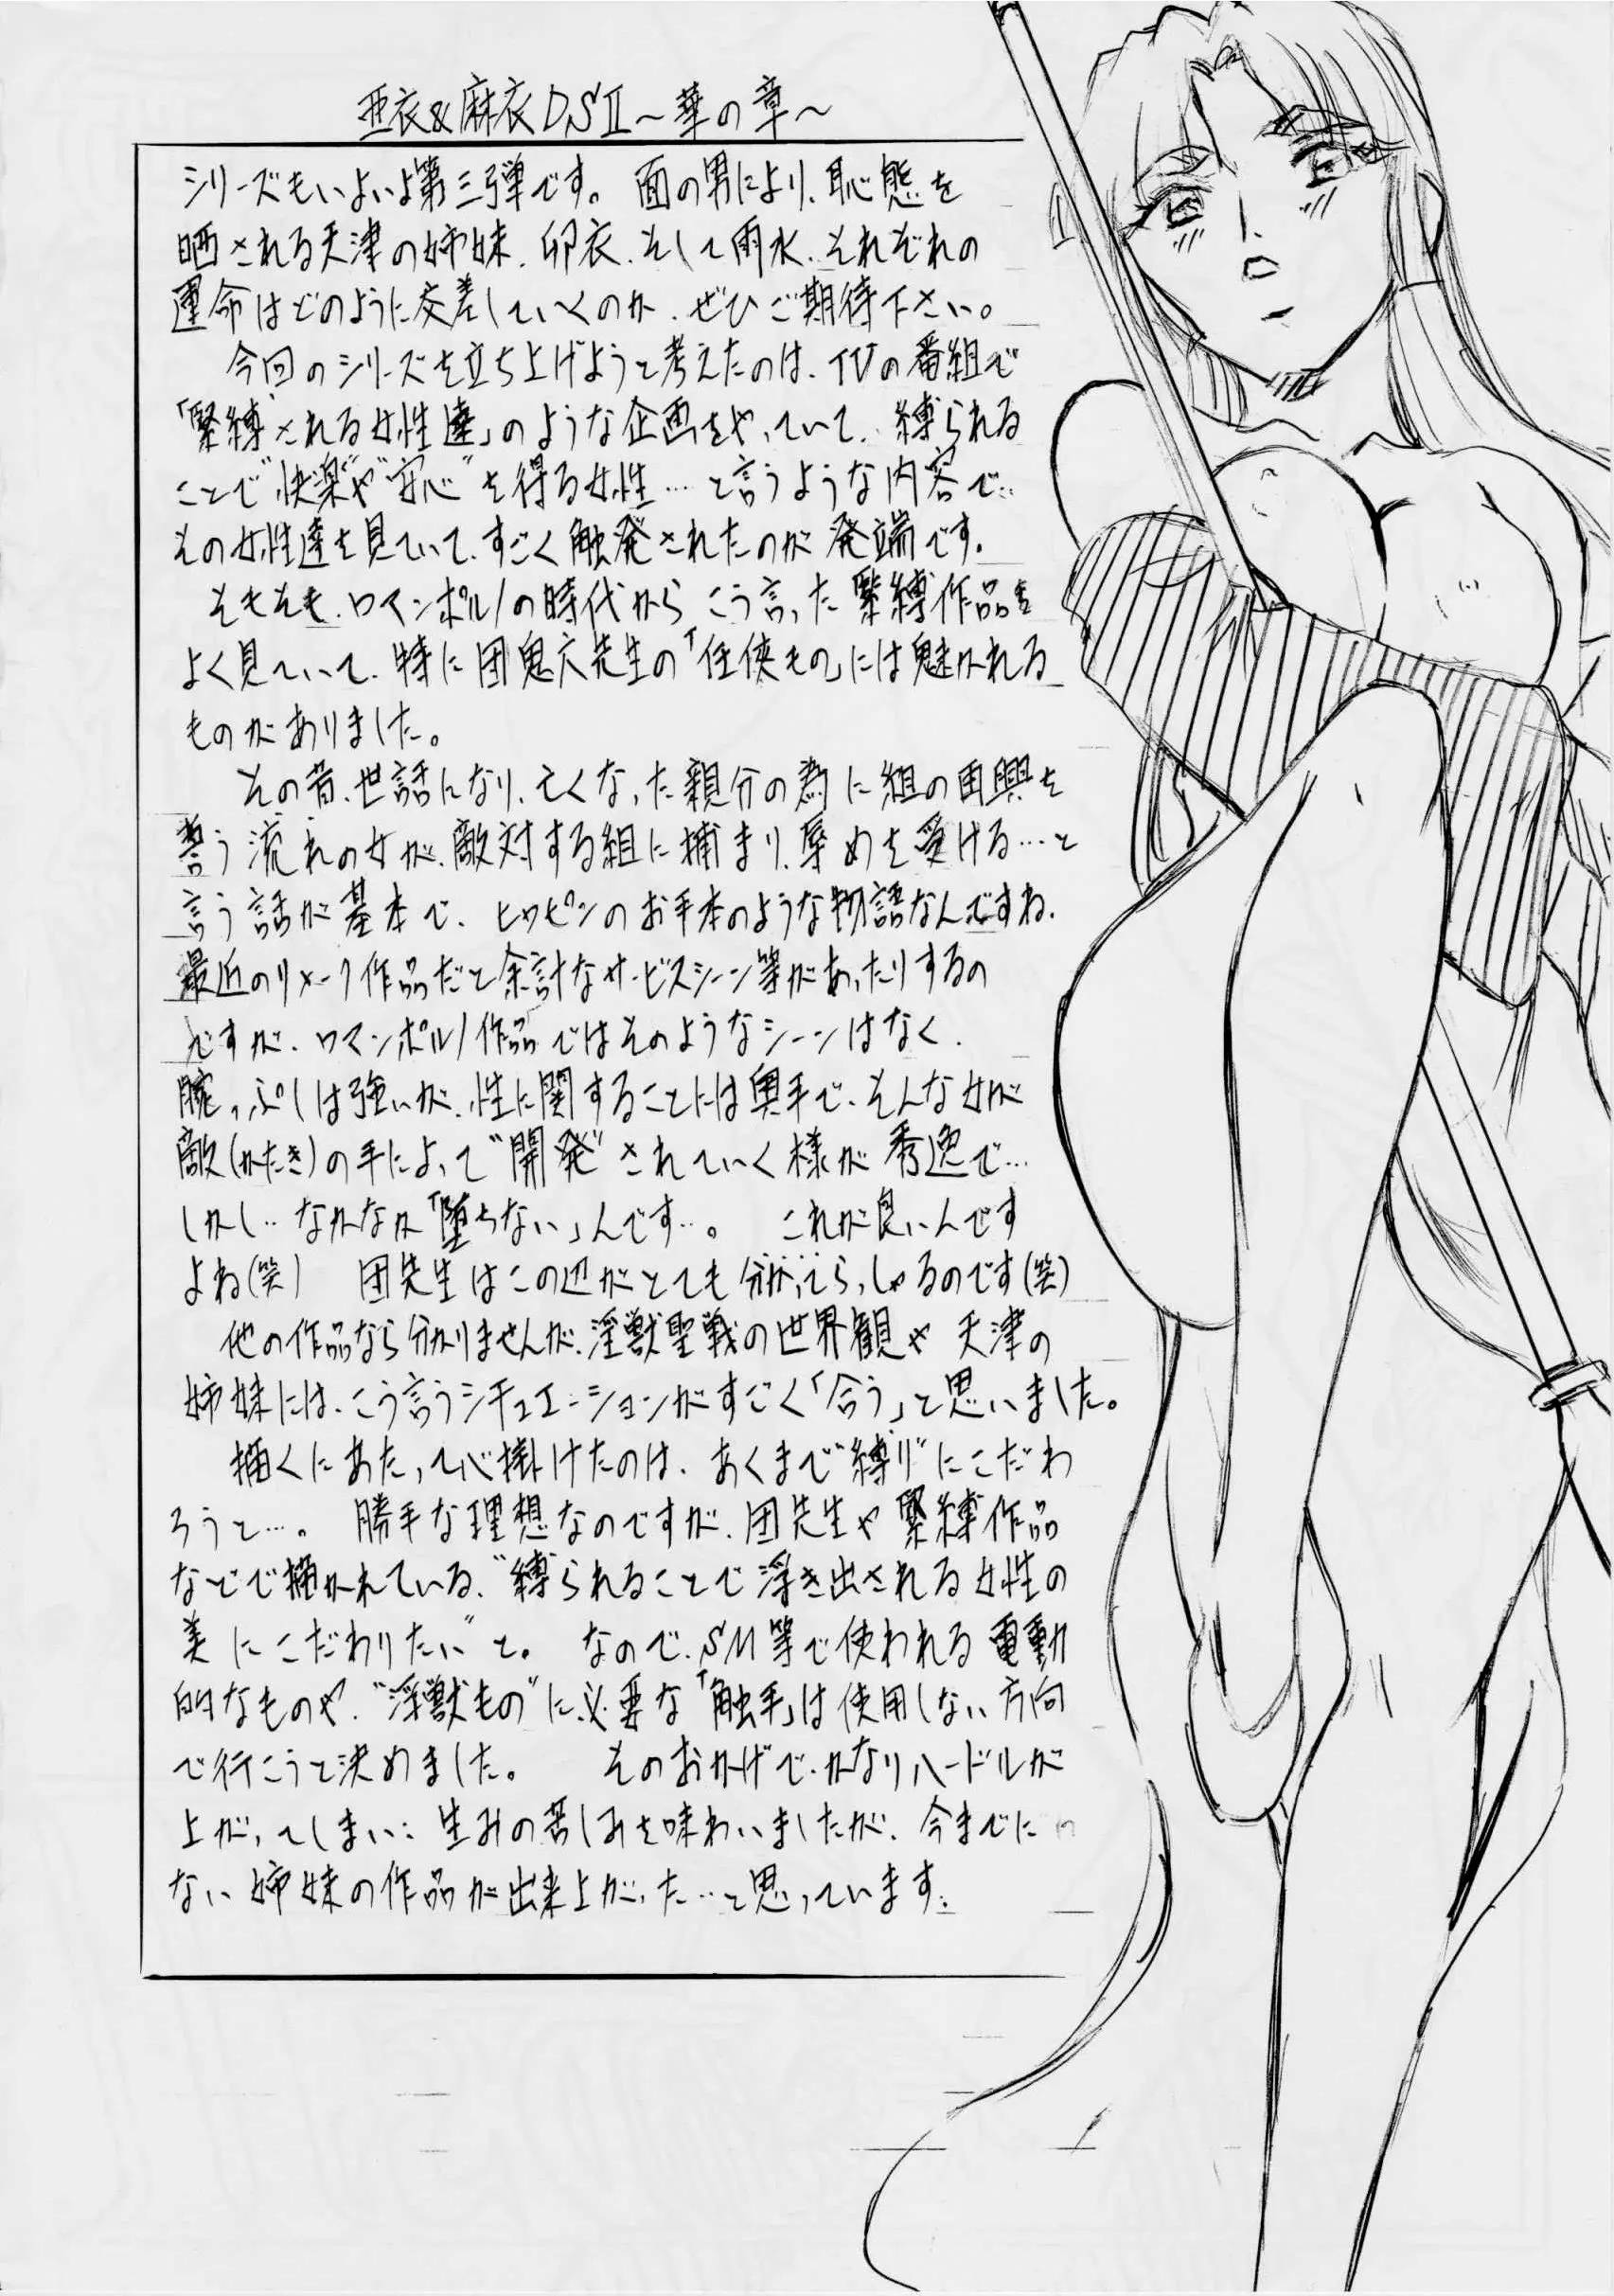 亜衣&麻衣DSⅡ～華の章～
シリーズもいよいよ第三弾です。 面の男により、恥態を
晒される天津の姉妹、卯衣、そして雨水、それぞれの
運命はどのように交差していくのか、ぜひご期待下さい。
今回のシリーズを立ち上げようと考えたのは、TVの番組で
「緊縛される女性達」のような企画をやっていて、縛られる
ことで"快楽"や"安心"を得る女性…と言うような内容で…
その女性達を見ていて、すごく触発されたのが発端です。
そもそも、ロマンポルノの時代からこう言った緊縛作品を
よく見ていて、特に団鬼六先生の「任侠もの」には魅かれる
ものがありました。
その昔、世話になり、亡くなった親分の為に組の再興を
誓う流れの女が、敵対する組に捕まり、辱めを受ける…と
言う話が基本で、ヒロピンのお手本のような物語なんですね。
最近のリメーク作品だと余計なサービスシーン等があったりするの
ですが、ロマンポルノ作品ではそのようなシーンはなく、
腕っぷしは強いが、性に関することには奥手で、そんな女が
敵(かたき)の手によって"開発"されていく様が秀逸で…
しかし…なかなか「堕ちない」んです…。 これが良いんです
よね(笑) 団先生はこの辺がとても分かってらっしゃるのです(笑)
他の作品なら分かりませんが、淫獣聖戦の世界観や天津の
姉妹には、こう言うシチュエーションがすごく「合う」と思いました。
描くにあたって心掛けたのは、あくまで"縛り"にこだわ
ろうと…。 勝手な理想なのですが、団先生や緊縛作品
などで描かれている、"縛られることで浮き出される女性の
美にこだわりたい"と。 なので、SM等で使われる電動
的なものや、"淫獣もの"に必要な「触手」は使用しない方向
で行こうと決めました。 そのおかげで、かなりハードルが
上がってしまい… 生みの苦しみを味わいましたが、今までに
ない姉妹の作品が出来上がった…と思っています。